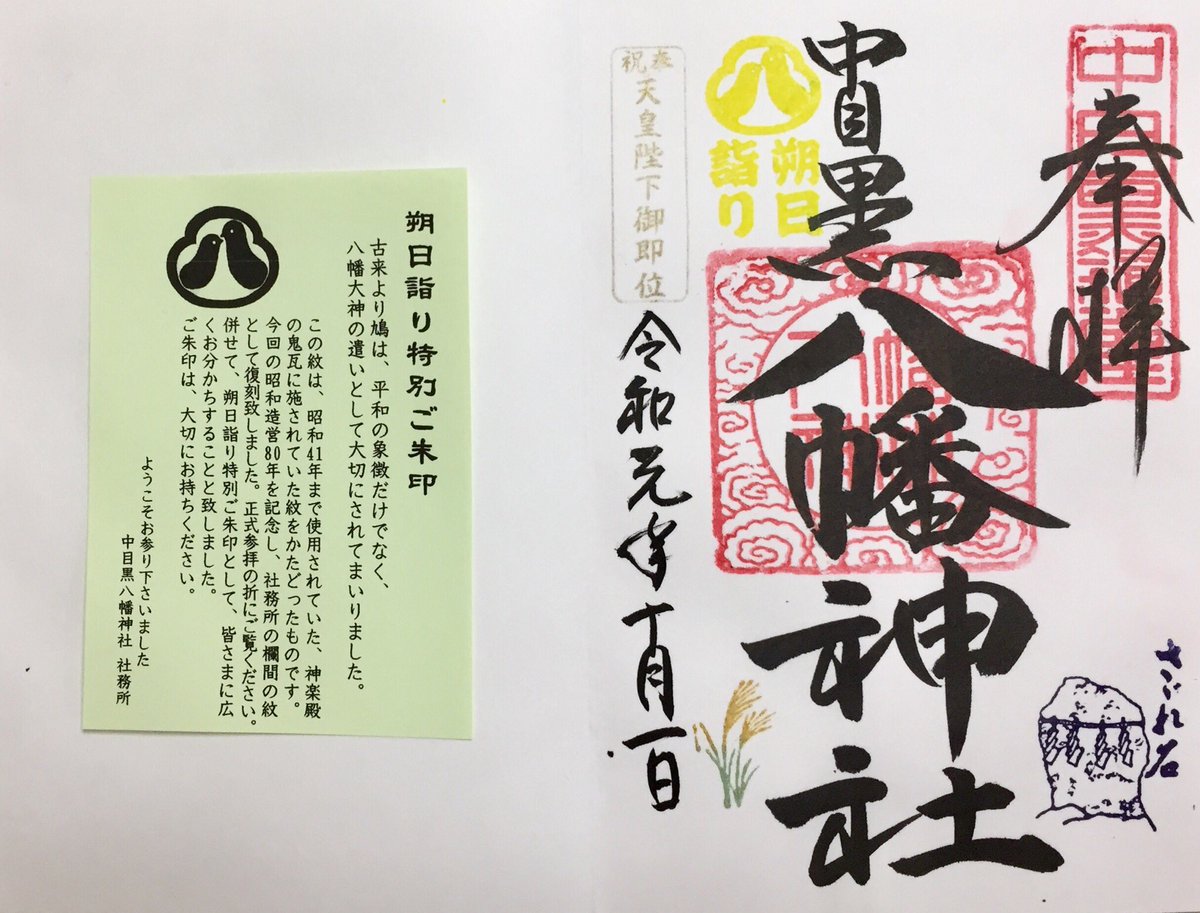 奉拝
中目黒八幡神社
朔日
詣り
奉祝
天皇陛下御即位
令和元年十月一日
さざれ石
朔日詣り特別ご朱印
古来より鳩は、平和の象徴だけでなく、
八幡大神の遣いとして大切にされてまいりました。
この紋は、昭和41年まで使用されていた、神楽殿
の鬼瓦に施されていた紋をかたどったものです。
今回の昭和造営80年を記念し、社務所の欄間の紋
として復刻致しました。正式参拝の折にご覧ください。
併せて、朔日詣り特別ご朱印として、皆さまに広
くお分かちすることと致しました。
ご朱印は、大切にお持ちください。
ようこそお参り下さいました
中目黒八幡神社 社務所